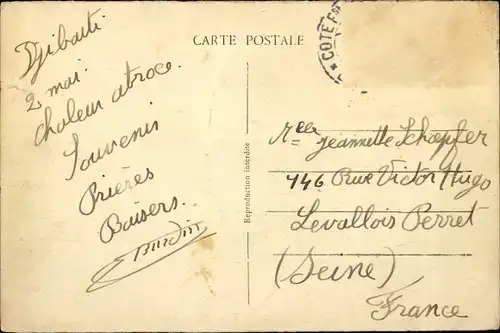 CARTE POSTALE
* CÔTE F
Djibouti.
2 mai.
Chaleur atroce.
Souvenir
Prières
Baisers.
Reproduction interdite
Melle Jeannette Schœpfer
146 Rue Victor Hugo
Levallois Perret
(Seine)
France